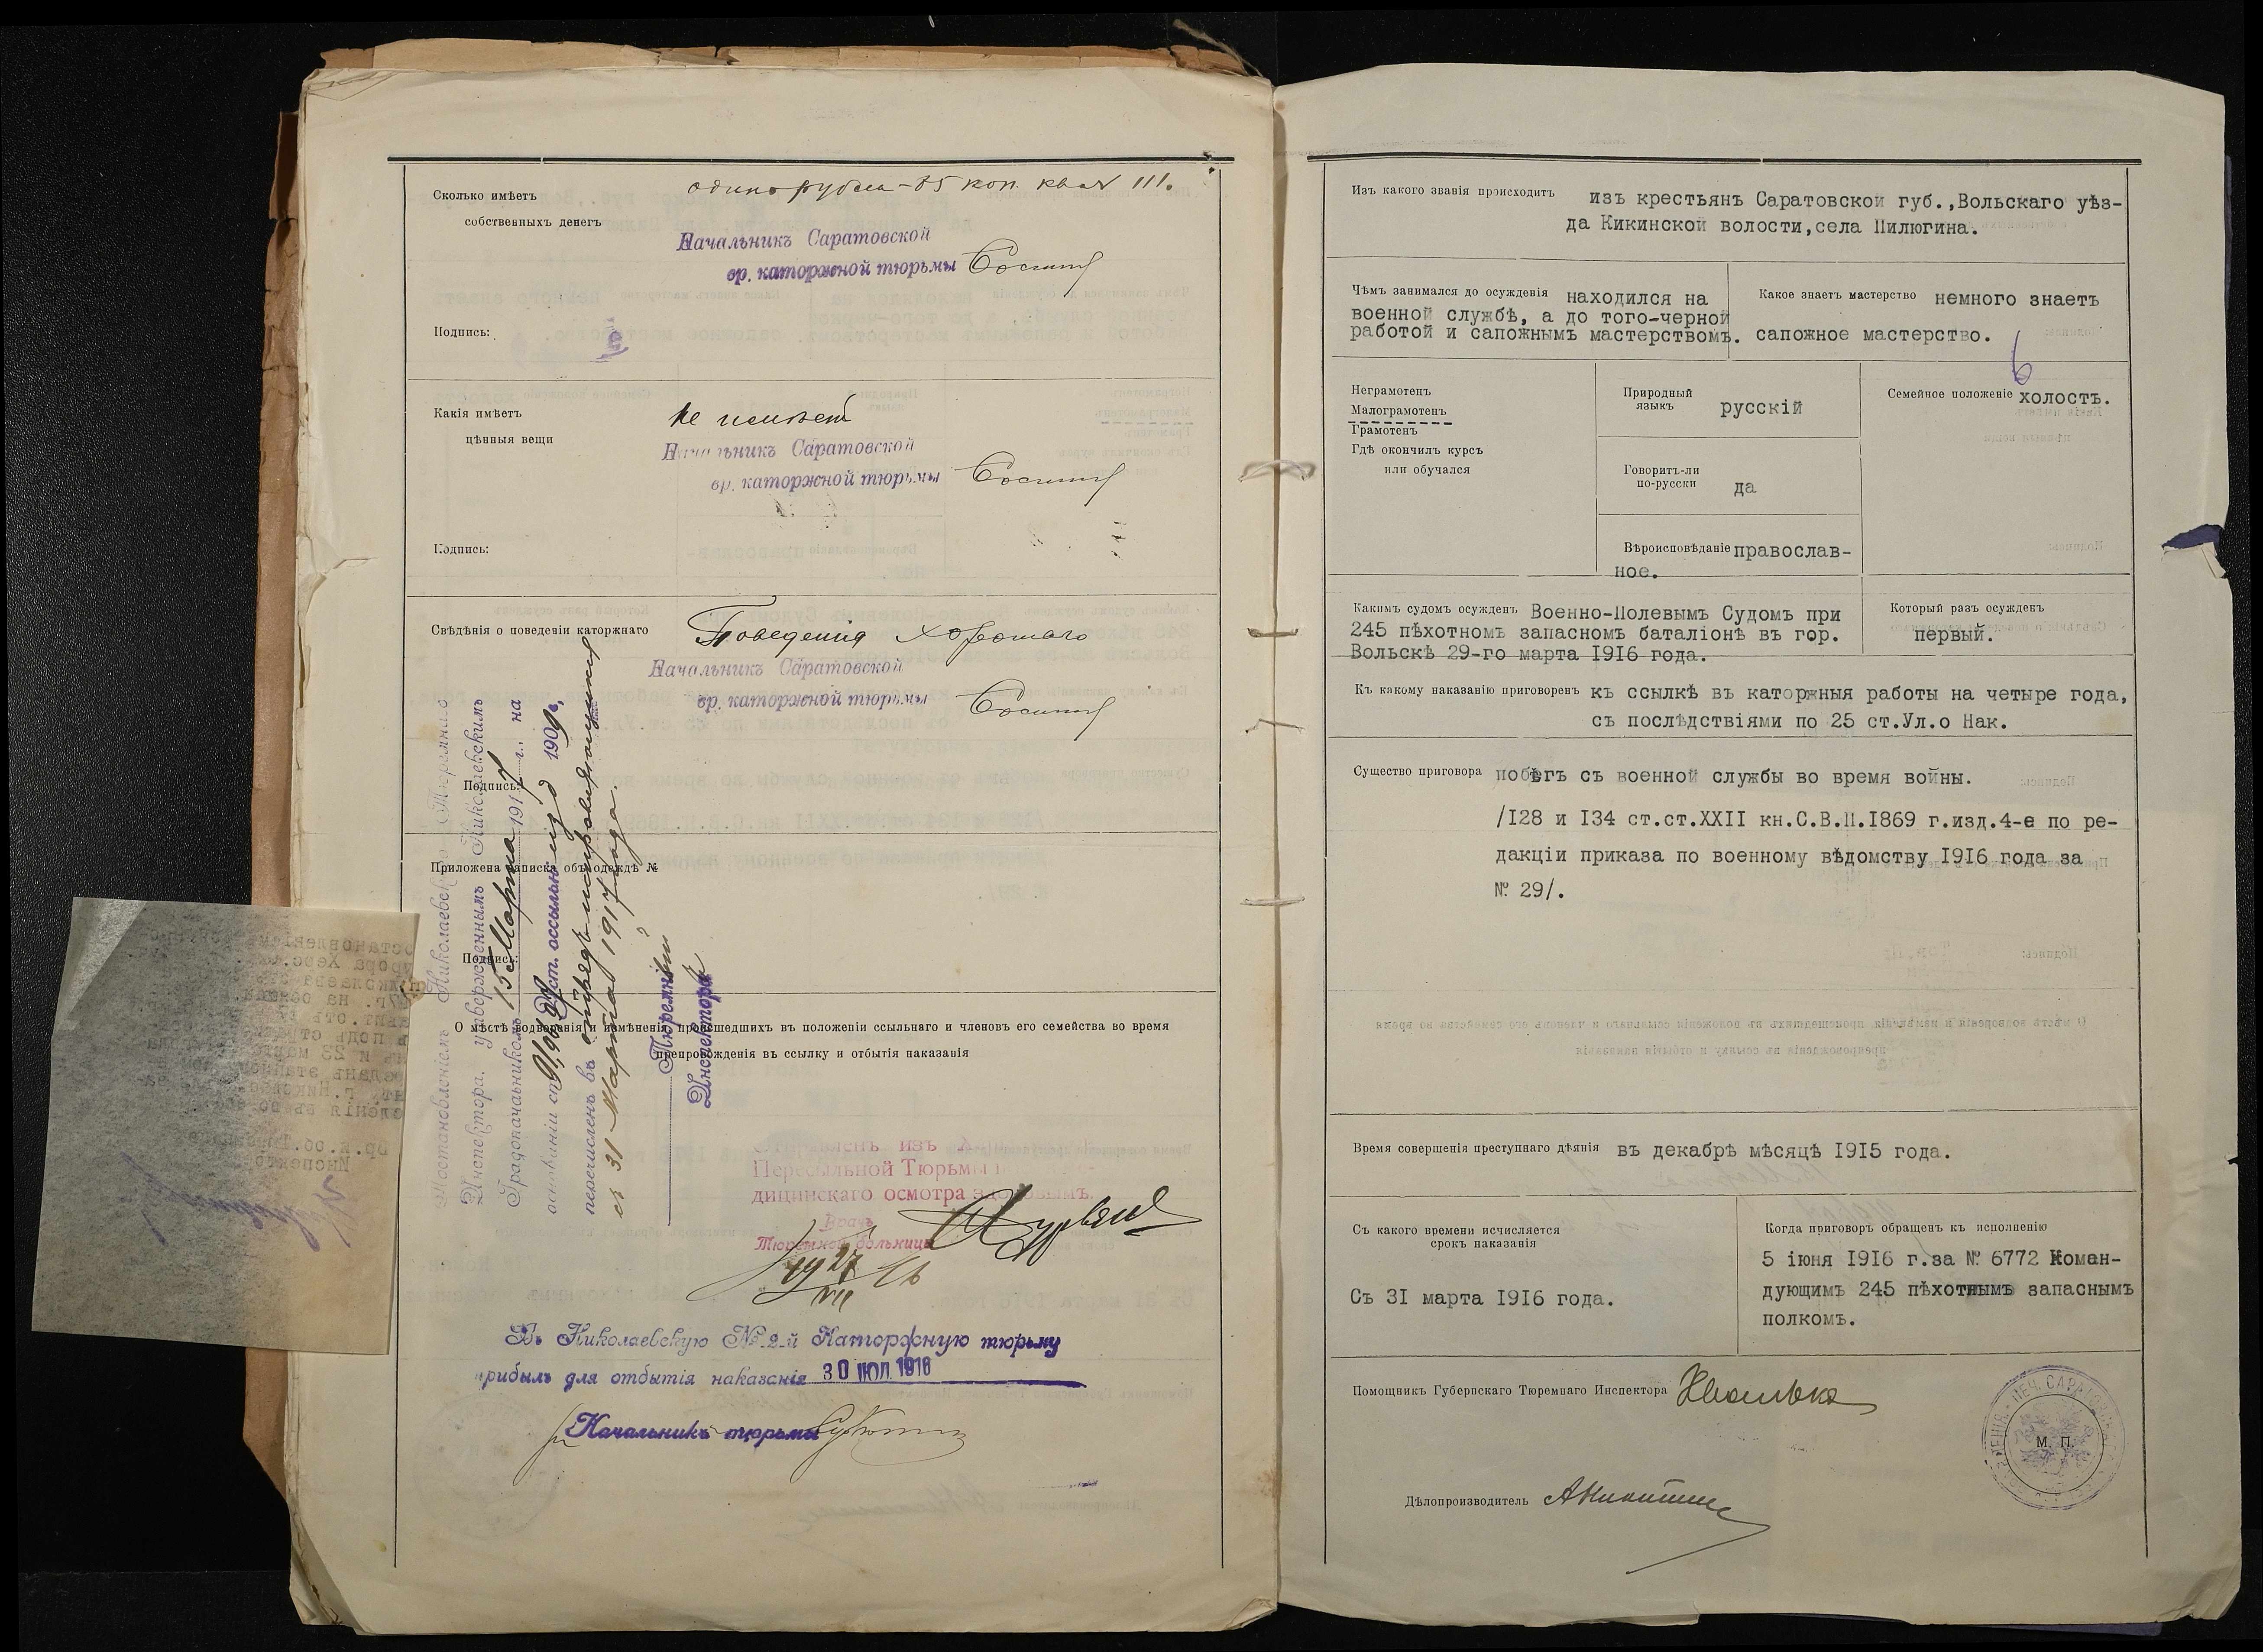 Сколько имѣетъ
собственныхъ денегъ
одинъ рубль - 85 коп.
Начальникъ Саратовской
вр. каторжной тюрьмы
Подпись:
Какія имѣетъ
цѣнныя вещи
не имѣетъ
Начальникъ Саратовской
вр. каторжной тюрьмы
Подпись:
Свѣдѣнія о поведеніи каторжнаго
Поведенія хорошаго
Начальникъ Саратовской
вр. каторжной тюрьмы
Подпись:
Приложена записка объ одеждѣ №
Подпись:
О мѣстѣ водворенія и измѣненія, происшедшихъ въ положеніи ссыльнаго и членовъ его семейства во время
препровожденія въ ссылку и отбытія наказанія
Постановленіемъ Николаевскаго Тюремнаго
Инспектора, утвержденнымъ Николаевскимъ
Градоначальникомъ 15 Марта 1917 г., на
основаніи ст. Уст. о ссыльн. изд. 1909 г.
перечисленъ въ отрядъ исправляющихся
съ 31 Марта 1917 года.
Тюремный
Инспекторъ
Отправленъ изъ
Пересыльной Тюрьмы
дицинскаго осмотра здоровымъ.
Врачъ
Тюремной больницы
Въ Николаевскую № 2-й Каторжную тюрьму
прибылъ для отбытія наказанія 30 ІЮЛ. 1916
Начальникъ тюрьмы
Изъ какого званія происходитъ изъ крестьянъ Саратовской губ.,Вольскаго уѣз-
да Кикинской волости,села Пилюгина.
Чѣмъ занимался до осужденія находился на
военной службѣ, а до того-черной
работой и сапожнымъ мастерствомъ.
Какое знаетъ мастерство немного знаетъ
сапожное мастерство.
6
Неграмотенъ
Малограмотенъ
Грамотенъ
Гдѣ окончилъ курсъ
или обучался
Природный
языкъ русскій
Говоритъ-ли
по-русски да
Вѣроисповѣданіе православ-
ное.
Семейное положеніе холостъ.
Какимъ судомъ осужденъ Военно-Полевымъ Судомъ при
245 пѣхотномъ запасномъ баталіонѣ въ гор.
Вольскѣ 29-го марта 1916 года.
Который разъ осужденъ
первый.
Къ какому наказанію приговоренъ къ ссылкѣ въ каторжныя работы на четыре года,
съ послѣдствіями по 25 ст.Ул.о Нак.
Существо приговора побѣгъ съ военной службы во время войны.
/128 и 134 ст.ст.XXII кн.С.В.П.1869 г.изд.4-е по ре-
дакціи приказа по военному вѣдомству 1916 года за
№ 29/.
Время совершенія преступнаго дѣянія въ декабрѣ мѣсяцѣ 1915 года.
Съ какого времени исчисляется
срокъ наказанія
Съ 31 марта 1916 года.
Когда приговоръ обращенъ къ исполненію
5 іюня 1916 г.за № 6772 Коман-
дующимъ 245 пѣхотнымъ запаснымъ
полкомъ.
Помощникъ Губернскаго Тюремнаго Инспектора
М. П.
Дѣлопроизводитель АНикитинъ